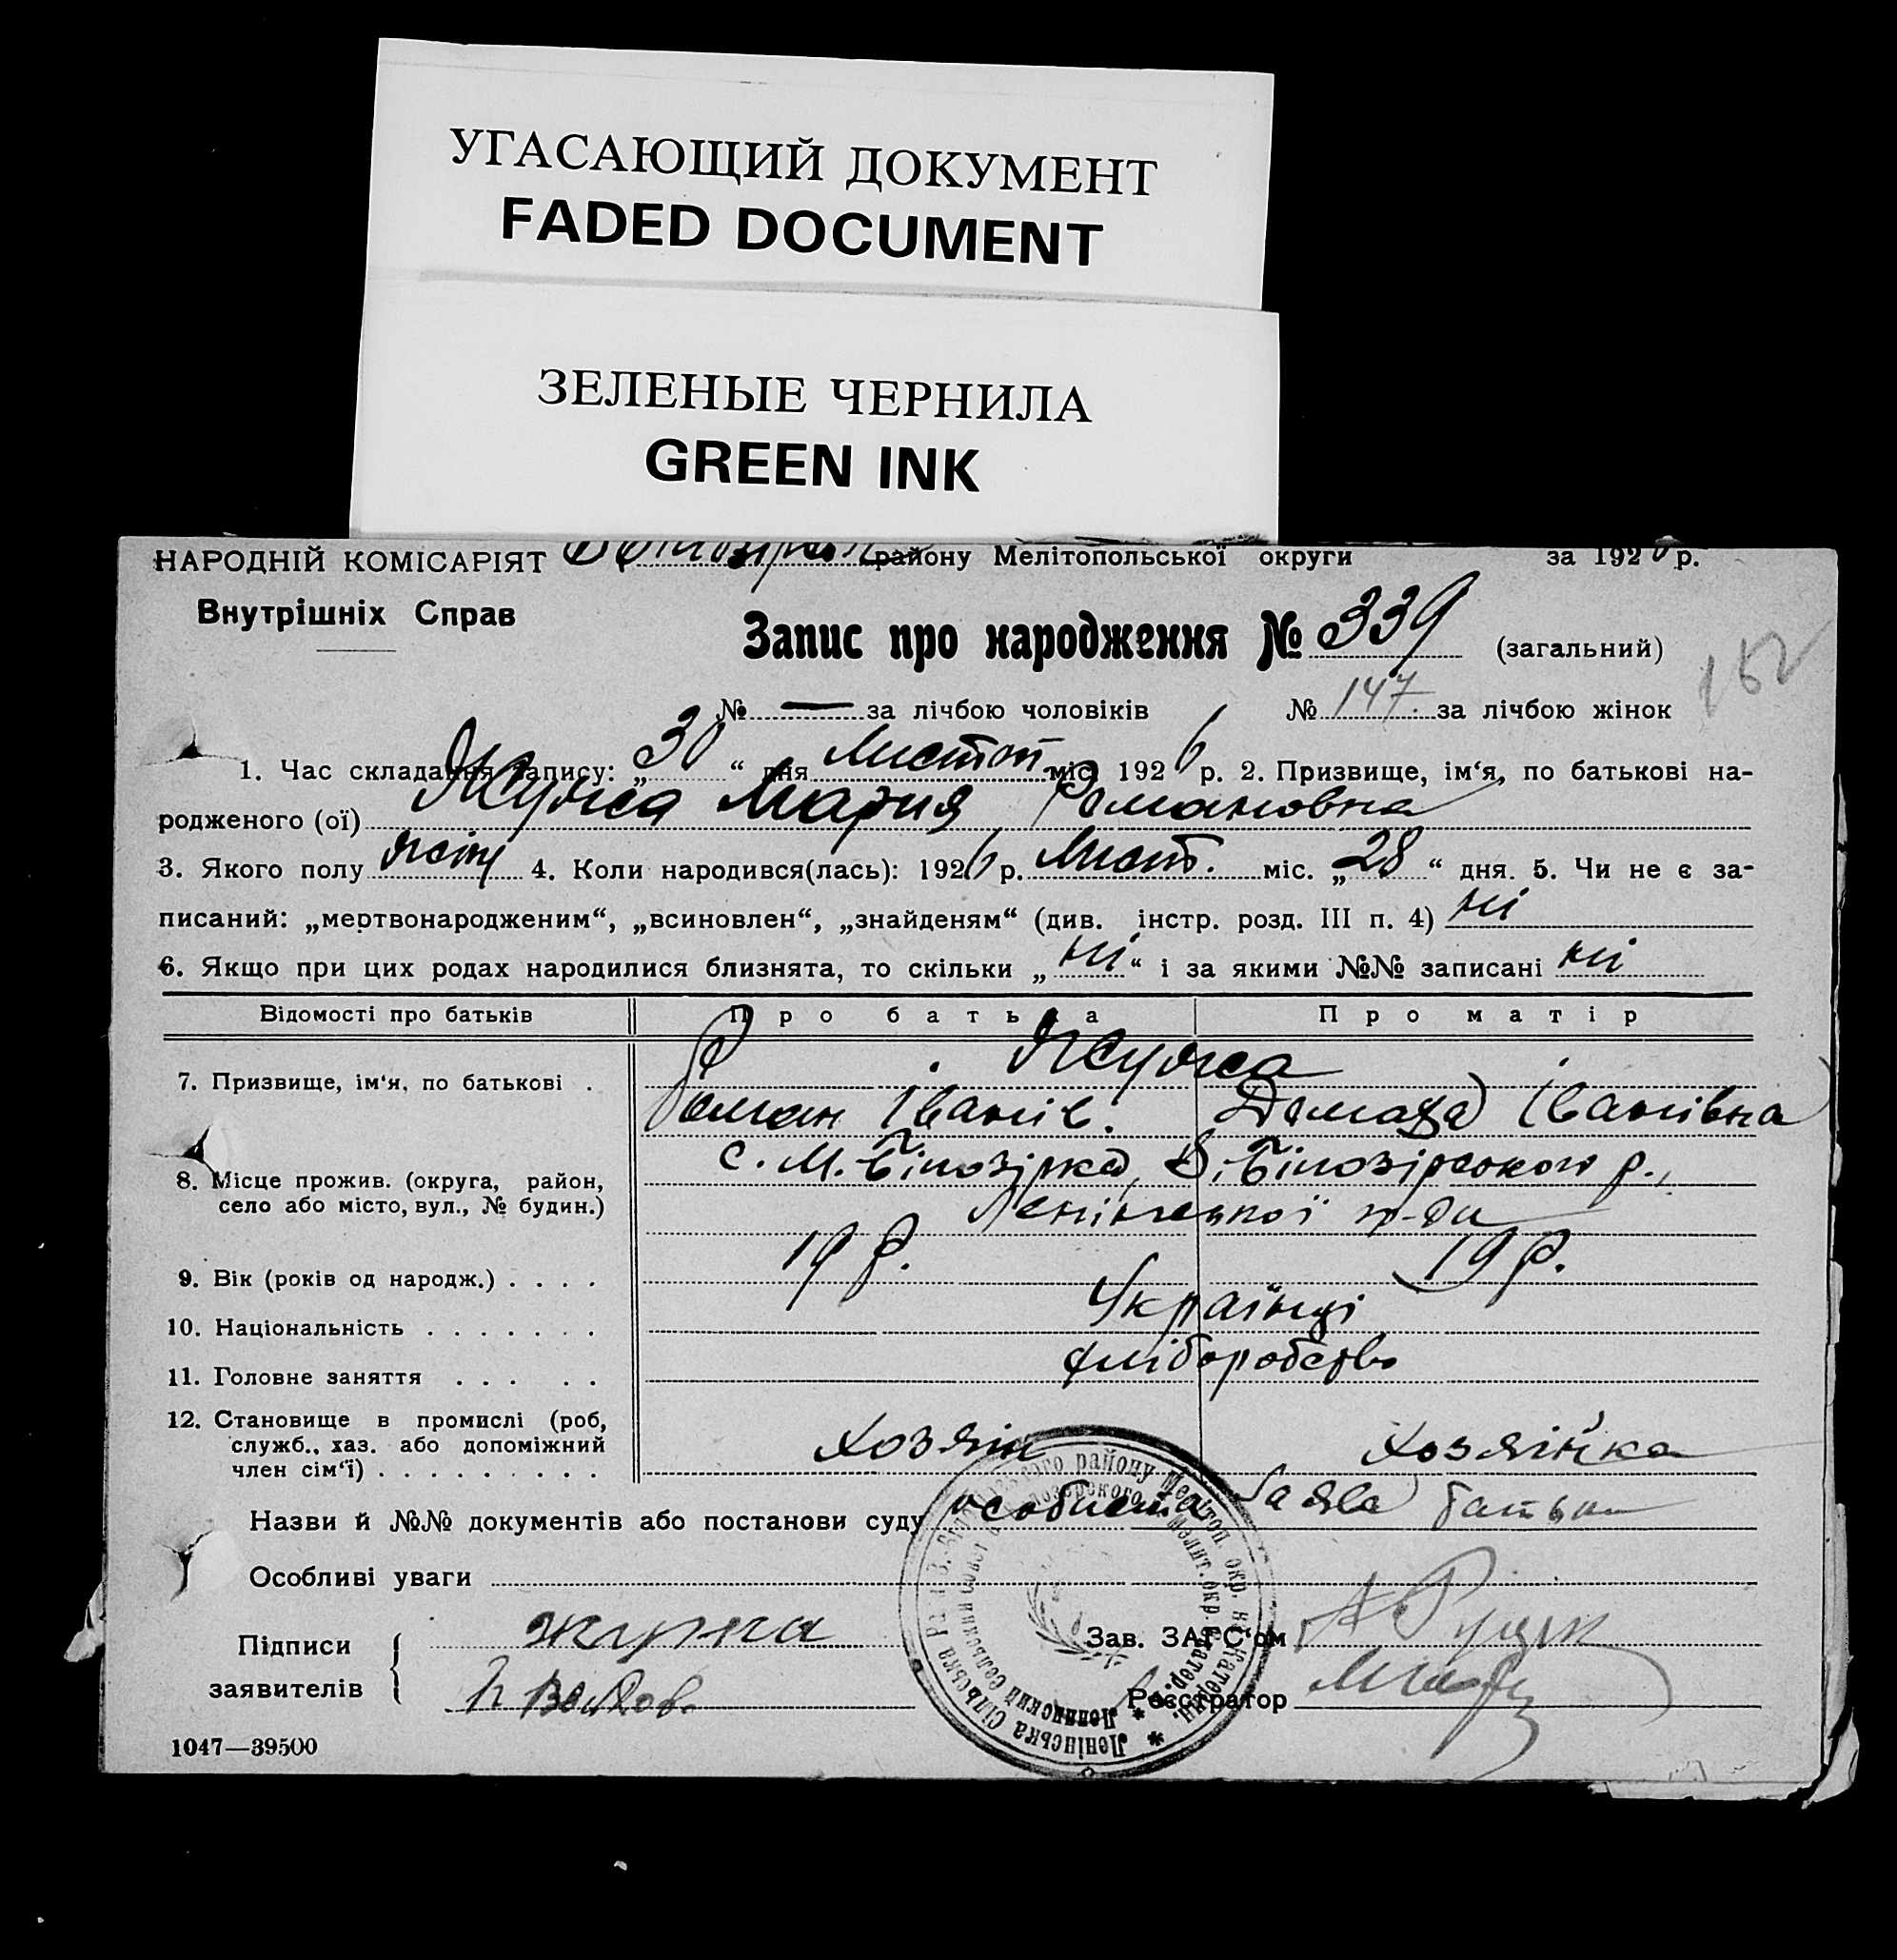 УГАСАЮЩИЙ ДОКУМЕНТ
FADED DOCUMENT
ЗЕЛЕНЫЕ ЧЕРНИЛА
GREEN INK
НАРОДНІЙ КОМІСАРІЯТ району Мелітопольської округи за 1926 р.
Внутрішніх Справ
Запис про народження № 339 (загальний)
152
№ — за лічбою чоловіків № 147 за лічбою жінок
1. Час складання запису: „30“ дня Листоп. міс. 1926 р. 2. Призвище, ім‘я, по батькові на-
родженого (ої) Мария Романовна
3. Якого полу жіно 4. Коли народився(лась): 1926 р. Лист. міс. „28“ дня. 5. Чи не є за-
писаний: „мертвонародженим“, „всиновлен“, „знайденям“ (див. інстр. розд. III п. 4) ні
6. Якщо при цих родах народилися близнята, то скільки „ні“ і за якими №№ записані ні
Відомості про батьків Про батька Про матір
7. Призвище, ім‘я, по батькові .
Роман Іванів. Іванівна
8. Місце прожив. (округа, район, с. М.-Білозірка, В.-Білозірського р.,
село або місто, вул., № будин.)
Ленінської
9. Вік (років од народж.) . . . . 19 р. 19 р.
10. Національність . . . . . . . Українці
11. Головне заняття . . . . . хліборобство
12. Становище в промислі (роб, служб., хаз. або допоміжний член сім‘ї) . . . . . . . . . Хозяін Хозяінка
Назви й №№ документів або постанови суду особиста заява батька
Особливі уваги
Підписи
заявителів
Зав. ЗАГС‘ом
Реєстратор
1047—39500